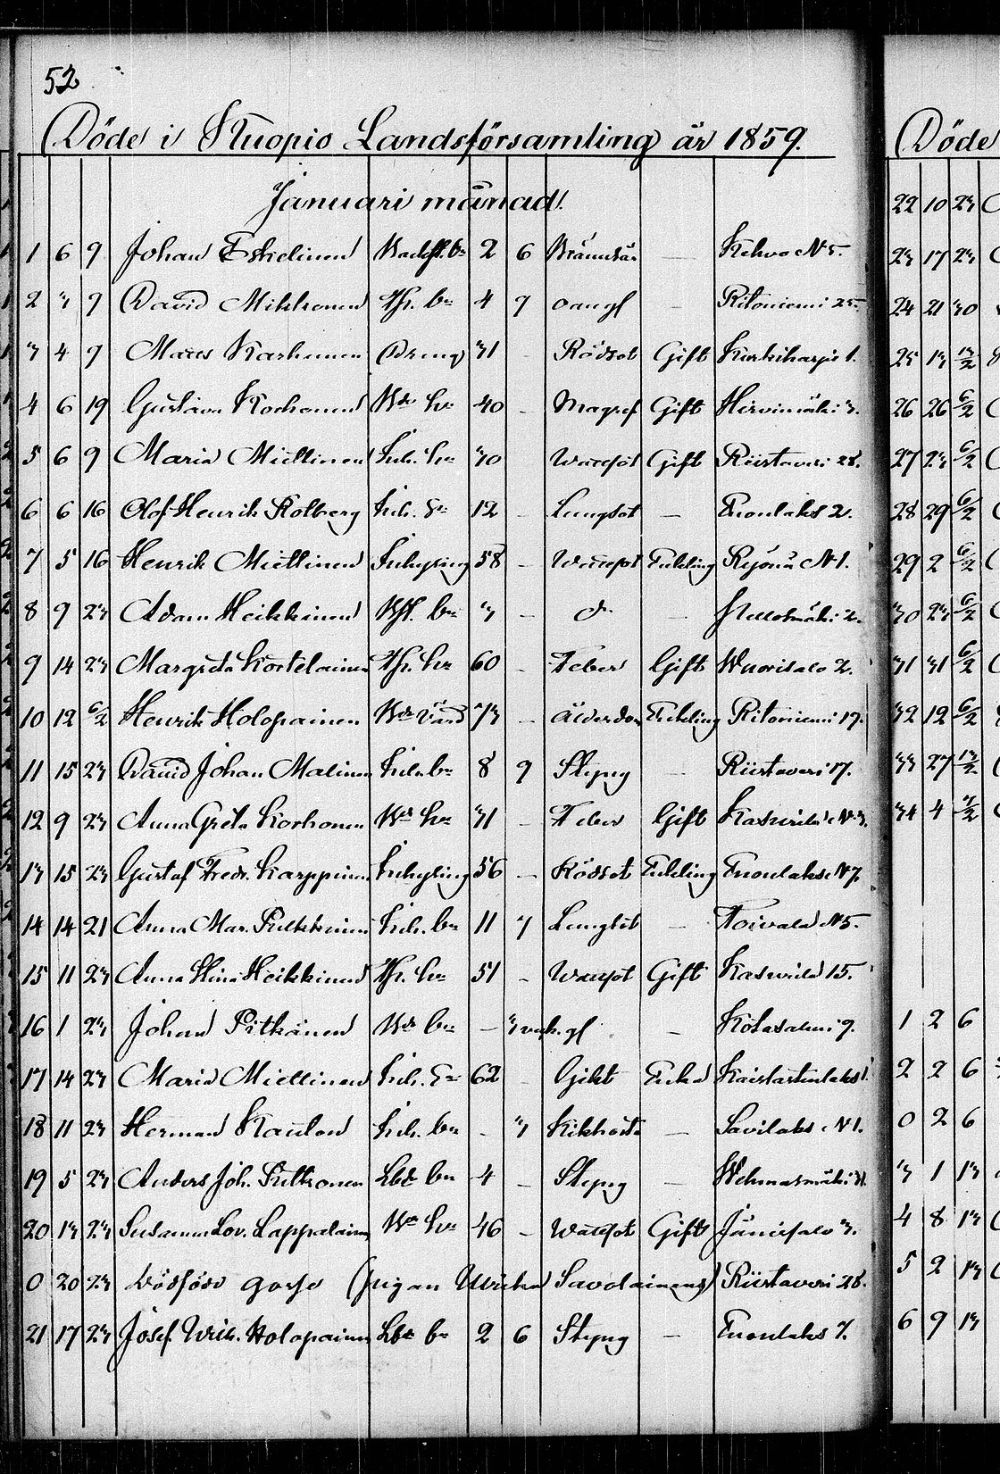 52
Döde i Kuopio Landsförsamling år 1859.
Januari månad.
1 6 9 Johan Eskelinen 2 6 Kehvo N 5.
2 3 9 David Mikkonen Thr. bn 4 9 oangf — Ritoniemi 25.
3 4 9 Mats Karhunen Dreng 31 - Rödsot Gift Kurkiharju 1.
4 6 19 Gustava Korhonen hu 40 - Magref Gift Hirvimäki 3.
5 6 9 Maria Miettinen Inh. hu 30 Wattsot Gift Riistaveri 28.
6 6 16 Olof Henrik Kolberg Inh. 12 - Lungsot — Enonlaks 2.
7 5 16 Henrik Miettinen Inhysing 58 - Wattsot Enkling N 1.
8 9 23 Adam Heikkinen bn 3 - d:o — 2.
9 14 23 Margreta Kortelainen Thr. hu 60 - Feber Gift Wuorisalo 2.
10 12 6/2 Henrik Holopainen 73 - Ålderdom Enkling Ritoniemi 19.
11 15 23 David Johan Malinen Inh. bn 8 9 Stryng — Riistaveri 17.
12 9 23 Anna Greta Korhonen hu 31 - Feber Gift Kasurila N 3.
13 15 23 Gustaf Fredr. Karppinen Inhysing 56 - Rödsot Enkling Enonlaks N 7.
14 14 21 Anna Mar. Pulkkinen Inh. bn 11 3 Lungsot — Toivala N 5.
15 11 23 Anna Stina Heikkinen Thr. hu 51 - Wattsot Gift Kasurila 15.
16 1 23 Johan Pitkänen bn — 3 vek. gf — Kotasalmi 9.
17 14 23 Maria Miettinen Inh. 62 - Gikt Enka
18 11 23 Herman Kaulon Inh. bn - 3 Kikhosta — Savilaks N 1.
19 5 23 Anders Joh. Pulkonen bn 4 - Stryng — Wehmasmäki
20 13 23 Susanna Lov. Lappalainen hu 46 - Wattsot Gift Jänissalo 3.
0 20 23 Dödföde gosse (pigan Ulrika Savolainens) Riistaveri 28.
21 17 23 Josef Wilh. Holopainen bn 2 6 Stryng — Enonlaks 7.
Döde
22 10 23
23 17 23
24 21 30
25 13 13/2
26 26 6/2
27 23 6/2
28 29 6/2
29 2 6/2
30 23 6/2
31 31 6/2
32 12 6/2
33 27 13/2
34 4
1 2 6
2 2 6
0 2 6
3 1 13
4 8 13
5 2 13
6 9 13